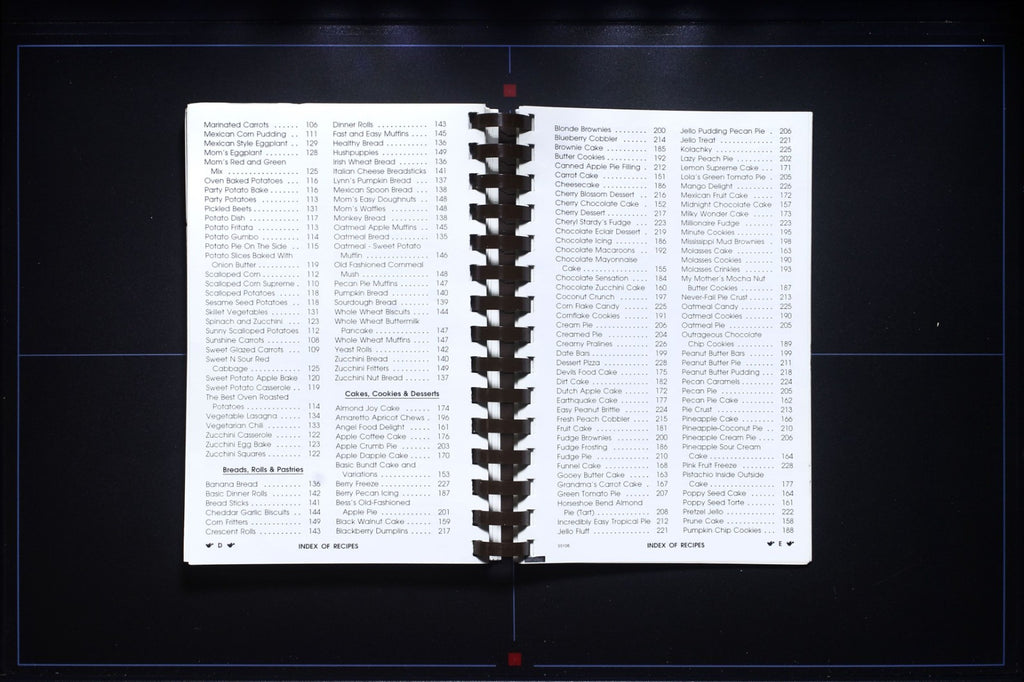 Marinated Carrots . . . . . . 106
Mexican Corn Pudding . . 111
Mexican Style Eggplant . . 129
Mom's Eggplant . . . . . . . 128
Mom's Red and Green
Mix . . . . . . . . . . . . . . . 125
Oven Baked Potatoes . . . 116
Party Potato Bake . . . . . . 116
Party Potatoes . . . . . . . . 113
Pickled Beets . . . . . . . . . 131
Potato Dish . . . . . . . . . . 117
Potato Fritata . . . . . . . . . 113
Potato Gumbo . . . . . . . . 114
Potato Pie On The Side . . 115
Potato Slices Baked With
Onion Butter . . . . . . . . . 119
Scalloped Corn . . . . . . . . 112
Scalloped Corn Supreme . 110
Scalloped Potatoes . . . . . 118
Sesame Seed Potatoes . . 118
Skillet Vegetables . . . . . . 131
Spinach and Zucchini . . . 123
Sunny Scalloped Potatoes 112
Sunshine Carrots . . . . . . . 108
Sweet Glazed Carrots . . . 109
Sweet N Sour Red
Cabbage . . . . . . . . . . . 125
Sweet Potato Apple Bake 120
Sweet Potato Casserole . . 119
The Best Oven Roasted
Potatoes . . . . . . . . . . . 114
Vegetable Lasagna . . . . . 134
Vegetarian Chili . . . . . . . . 133
Zucchini Casserole . . . . . . 122
Zucchini Egg Bake . . . . . . 123
Zucchini Squares . . . . . . . 122
Breads, Rolls & Pastries
Banana Bread . . . . . . . . 136
Basic Dinner Rolls . . . . . . 142
Bread Sticks . . . . . . . . . . 141
Cheddar Garlic Biscuits . . 144
Corn Fritters . . . . . . . . . . 149
Crescent Rolls . . . . . . . . . 143
Dinner Rolls . . . . . . . . . . 143
Fast and Easy Muffins . . . . 145
Healthy Bread . . . . . . . . 136
Hushpuppies . . . . . . . . . 149
Irish Wheat Bread . . . . . . 136
Italian Cheese Breadsticks 141
Lynn's Pumpkin Bread . . . 137
Mexican Spoon Bread . . . 138
Mom's Easy Doughnuts . . 148
Mom's Waffles . . . . . . . . 148
Monkey Bread . . . . . . . . 138
Oatmeal Apple Muffins . . 145
Oatmeal Bread . . . . . . . . 135
Oatmeal - Sweet Potato
Muffin . . . . . . . . . . . . . 146
Old Fashioned Cornmeal
Mush . . . . . . . . . . . . . . 148
Pecan Pie Muffins . . . . . . 147
Pumpkin Bread . . . . . . . . 140
Sourdough Bread . . . . . . 139
Whole Wheat Biscuits . . . . 144
Whole Wheat Buttermilk
Pancake . . . . . . . . . . . 147
Whole Wheat Muffins . . . 147
Yeast Rolls . . . . . . . . . . . 142
Zucchini Bread . . . . . . . . 140
Zucchini Fritters . . . . . . . . 149
Zucchini Nut Bread . . . . . 137
Cakes, Cookies & Desserts
Almond Joy Cake . . . . . . 174
Amaretto Apricot Chews . 196
Angel Food Delight . . . . . 161
Apple Coffee Cake . . . . . 176
Apple Crumb Pie . . . . . . 203
Apple Dapple Cake . . . . 170
Basic Bundt Cake and
Variations . . . . . . . . . . 153
Berry Freeze . . . . . . . . . . 227
Berry Pecan Icing . . . . . . 187
Bess's Old-Fashioned
Apple Pie . . . . . . . . . . . 201
Black Walnut Cake . . . . . 159
Blackberry Dumplins . . . . 217
D INDEX OF RECIPES
Blonde Brownies . . . . . . . 200
Blueberry Cobbler . . . . . . 214
Brownie Cake . . . . . . . . . 185
Butter Cookies . . . . . . . . 192
Canned Apple Pie Filling . 212
Carrot Cake . . . . . . . . . . 151
Cheesecake . . . . . . . . . . 186
Cherry Blossom Dessert . . 216
Cherry Chocolate Cake . . 152
Cherry Dessert . . . . . . . . 217
Cheryl Stardy's Fudge . . . 223
Chocolate Eclair Dessert . 219
Chocolate Icing . . . . . . . 186
Chocolate Macaroons . . 192
Chocolate Mayonnaise
Cake . . . . . . . . . . . . . . 155
Chocolate Sensation . . . . 184
Chocolate Zucchini Cake 160
Coconut Crunch . . . . . . . 197
Corn Flake Candy . . . . . . 225
Cornflake Cookies . . . . . 191
Cream Pie . . . . . . . . . . . 206
Creamed Pie . . . . . . . . . 204
Creamy Pralines . . . . . . . 226
Date Bars . . . . . . . . . . . . 199
Dessert Pizza . . . . . . . . . 228
Devils Food Cake . . . . . . 175
Dirt Cake . . . . . . . . . . . . 182
Dutch Apple Cake . . . . . 172
Earthquake Cake . . . . . . 177
Easy Peanut Brittle . . . . . . 224
Fresh Peach Cobbler . . . . 215
Fruit Cake . . . . . . . . . . . 181
Fudge Brownies . . . . . . . 200
Fudge Frosting . . . . . . . . 186
Fudge Pie . . . . . . . . . . . 210
Funnel Cake . . . . . . . . . . 168
Gooey Butter Cake . . . . . 163
Grandma's Carrot Cake . 167
Green Tomato Pie . . . . . 207
Horseshoe Bend Almond
Pie (Tart) . . . . . . . . . . . 208
Incredibly Easy Tropical Pie 212
Jello Fluff . . . . . . . . . . . . 221
Jello Pudding Pecan Pie . 206
Jello Treat . . . . . . . . . . . 221
Kolachky . . . . . . . . . . . . 225
Lazy Peach Pie . . . . . . . . 202
Lemon Supreme Cake . . . 171
Lola's Green Tomato Pie . 205
Mango Delight . . . . . . . . 226
Mexican Fruit Cake . . . . . 172
Midnight Chocolate Cake 157
Milky Wonder Cake . . . . 173
Millionaire Fudge . . . . . . . 223
Minute Cookies . . . . . . . 195
Mississippi Mud Brownies . 198
Molasses Cake . . . . . . . . 163
Molasses Cookies . . . . . . 190
Molasses Crinkles . . . . . . 193
My Mother's Mocha Nut
Butter Cookies . . . . . . . 187
Never-Fail Pie Crust . . . . . 213
Oatmeal Candy . . . . . . . 225
Oatmeal Cookies . . . . . . 190
Oatmeal Pie . . . . . . . . . 205
Outrageous Chocolate
Chip Cookies . . . . . . . . 189
Peanut Butter Bars . . . . . 199
Peanut Butter Pie . . . . . . 211
Peanut Butter Pudding . . . 218
Pecan Caramels . . . . . . . 224
Pecan Pie . . . . . . . . . . . 205
Pecan Pie Cake . . . . . . . 162
Pie Crust . . . . . . . . . . . . 213
Pineapple Cake . . . . . . . 166
Pineapple-Coconut Pie . . 210
Pineapple Cream Pie . . . 206
Pineapple Sour Cream
Cake . . . . . . . . . . . . . . 164
Pink Fruit Freeze . . . . . . . 228
Pistachio Inside Outside
Cake . . . . . . . . . . . . . . 177
Poppy Seed Cake . . . . . . 164
Poppy Seed Torte . . . . . . 161
Pretzel Jello . . . . . . . . . . 222
Prune Cake . . . . . . . . . . 158
Pumpkin Chip Cookies . . 188
INDEX OF RECIPES E